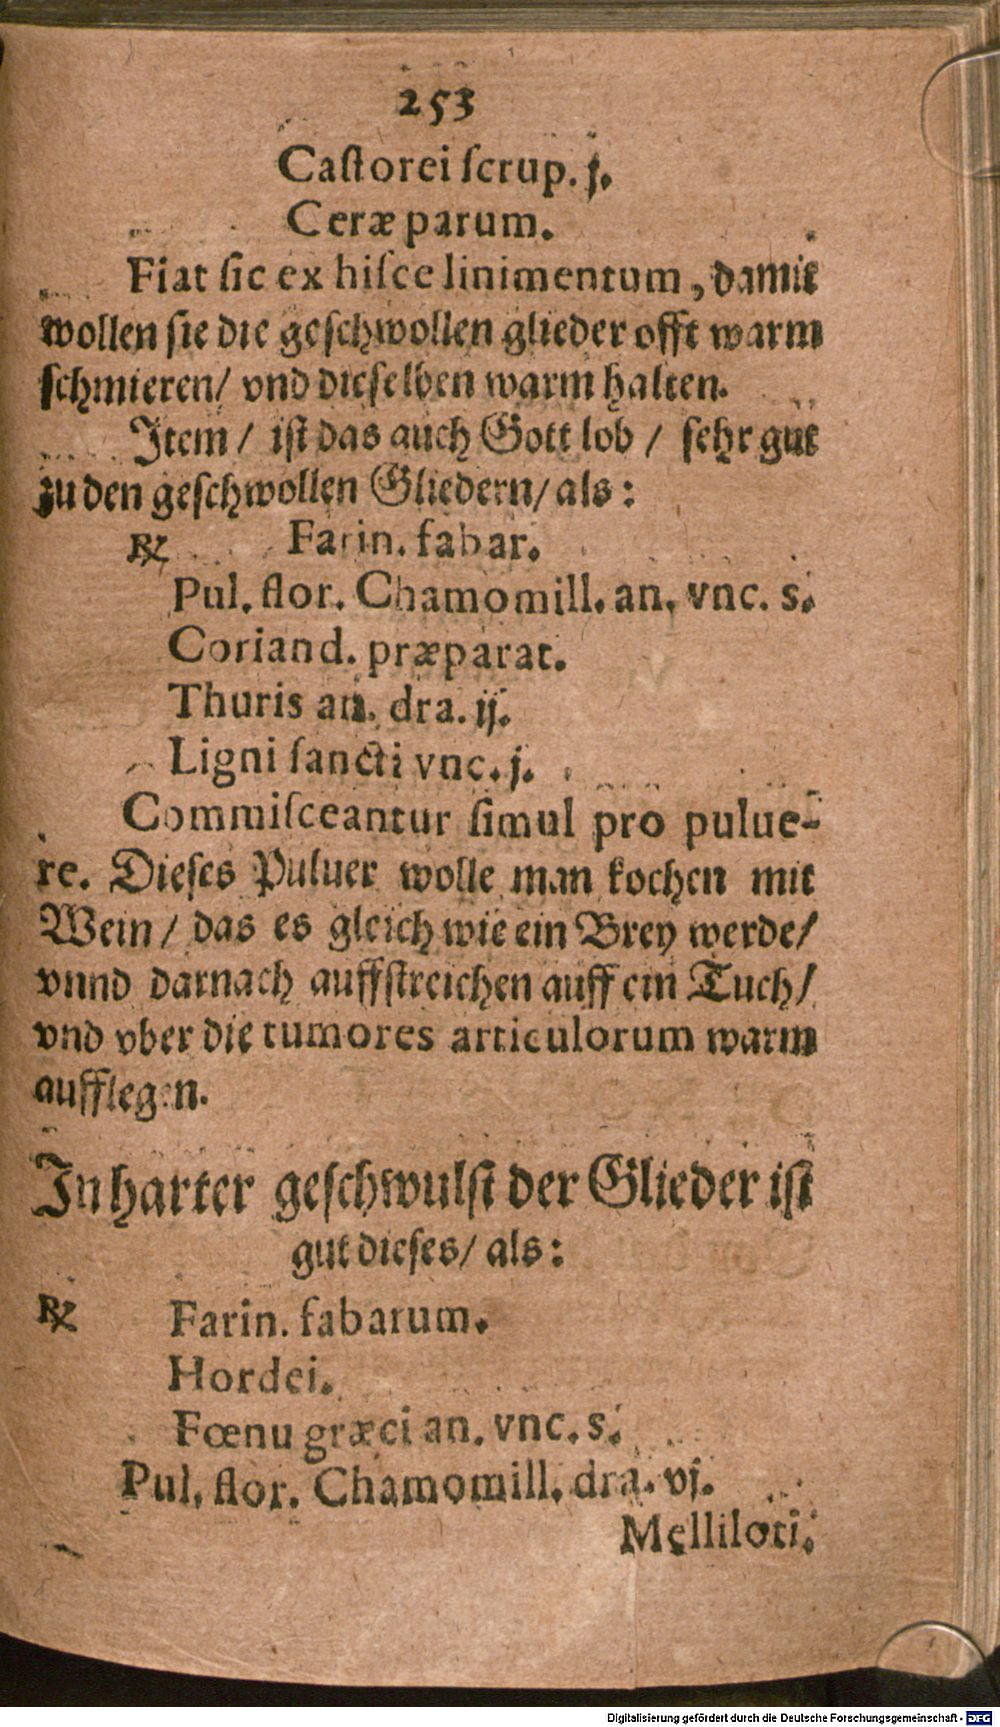 253
Caſtorei ſcrup. j.
Ceræ parum.
Fiat ſic ex hiſce linimentum, damit
wollen sie die geſchwollen glieder offt warm
ſchmieren/ vnd dieſelben warm halten.
Item / iſt das auch Gott lob / ſehr gut
zu den geſchwollen Gliedern/ als:
℞ Farin. fabar.
Pul. flor. Chamomill. an. vnc. s.
Coriand. præparat.
Thuris an. dra. ij.
Ligni ſancti vnc. j.
Commiſceantur ſimul pro pulue-
re. Dieſes Puluer wolle man kochen mit
Wein / das es gleich wie ein Brey werde/
vnnd darnach auffſtreichen auff ein Tuch/
vnd vber die tumores articulorum warm
aufflegen.
In harter geſchwulſt der Glieder iſt
gut dieſes/ als:
℞ Farin. fabarum.
Hordei.
Fœnu græci an. vnc. s.
Pul. flor. Chamomill. dra. vj.
Melliloti.
Digitalisierung gefördert durch die Deutsche Forschungsgemeinschaft - DFG